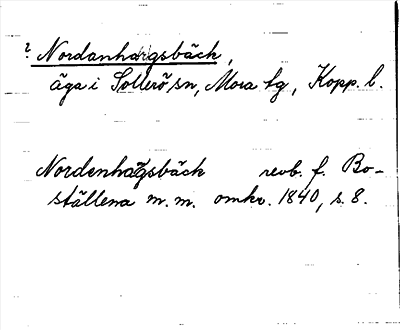 ? Nordanhagsbäck,
äga i Sollerö sn, Mora tg, Kopp. l.
Nordenhagsbäck revb. f. Bo-
ställena m.m. omkr. 1840, s. 8.